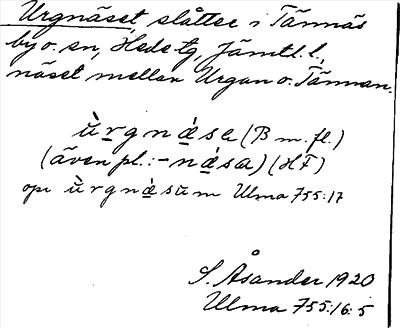 Urgnäset, slåtter i Tännäs
by o. sn, Hede tg, Jämtl. l.,
näset mellan Urgan o. Tännan.
ùrgnǽsɐ (B m. fl.)
(även pl.: -nǽsɐ) (HF)
opɩ ùrgnǽsɯm Ulma 755:17
S. Åsander 1920
Ulma 755:16:5